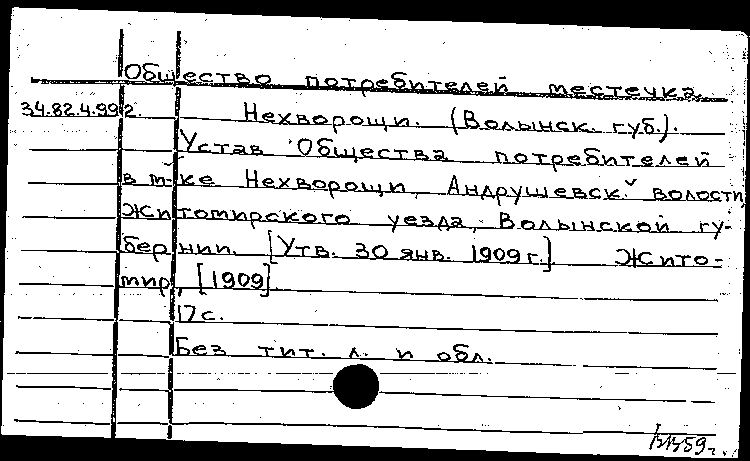 Общество потребителей местечка
34.82.4.992. Нехворощи. (Волынск. губ.).
Устав Общества потребителей
в м-ке Нехворощи, Андрушевск. волости
Житомирского уезда, Волынской гу-
бернии. [Утв. 30 янв. 1909 г.] Жито-
мир, [1909]
17 с.
Без тит. л. и обл.